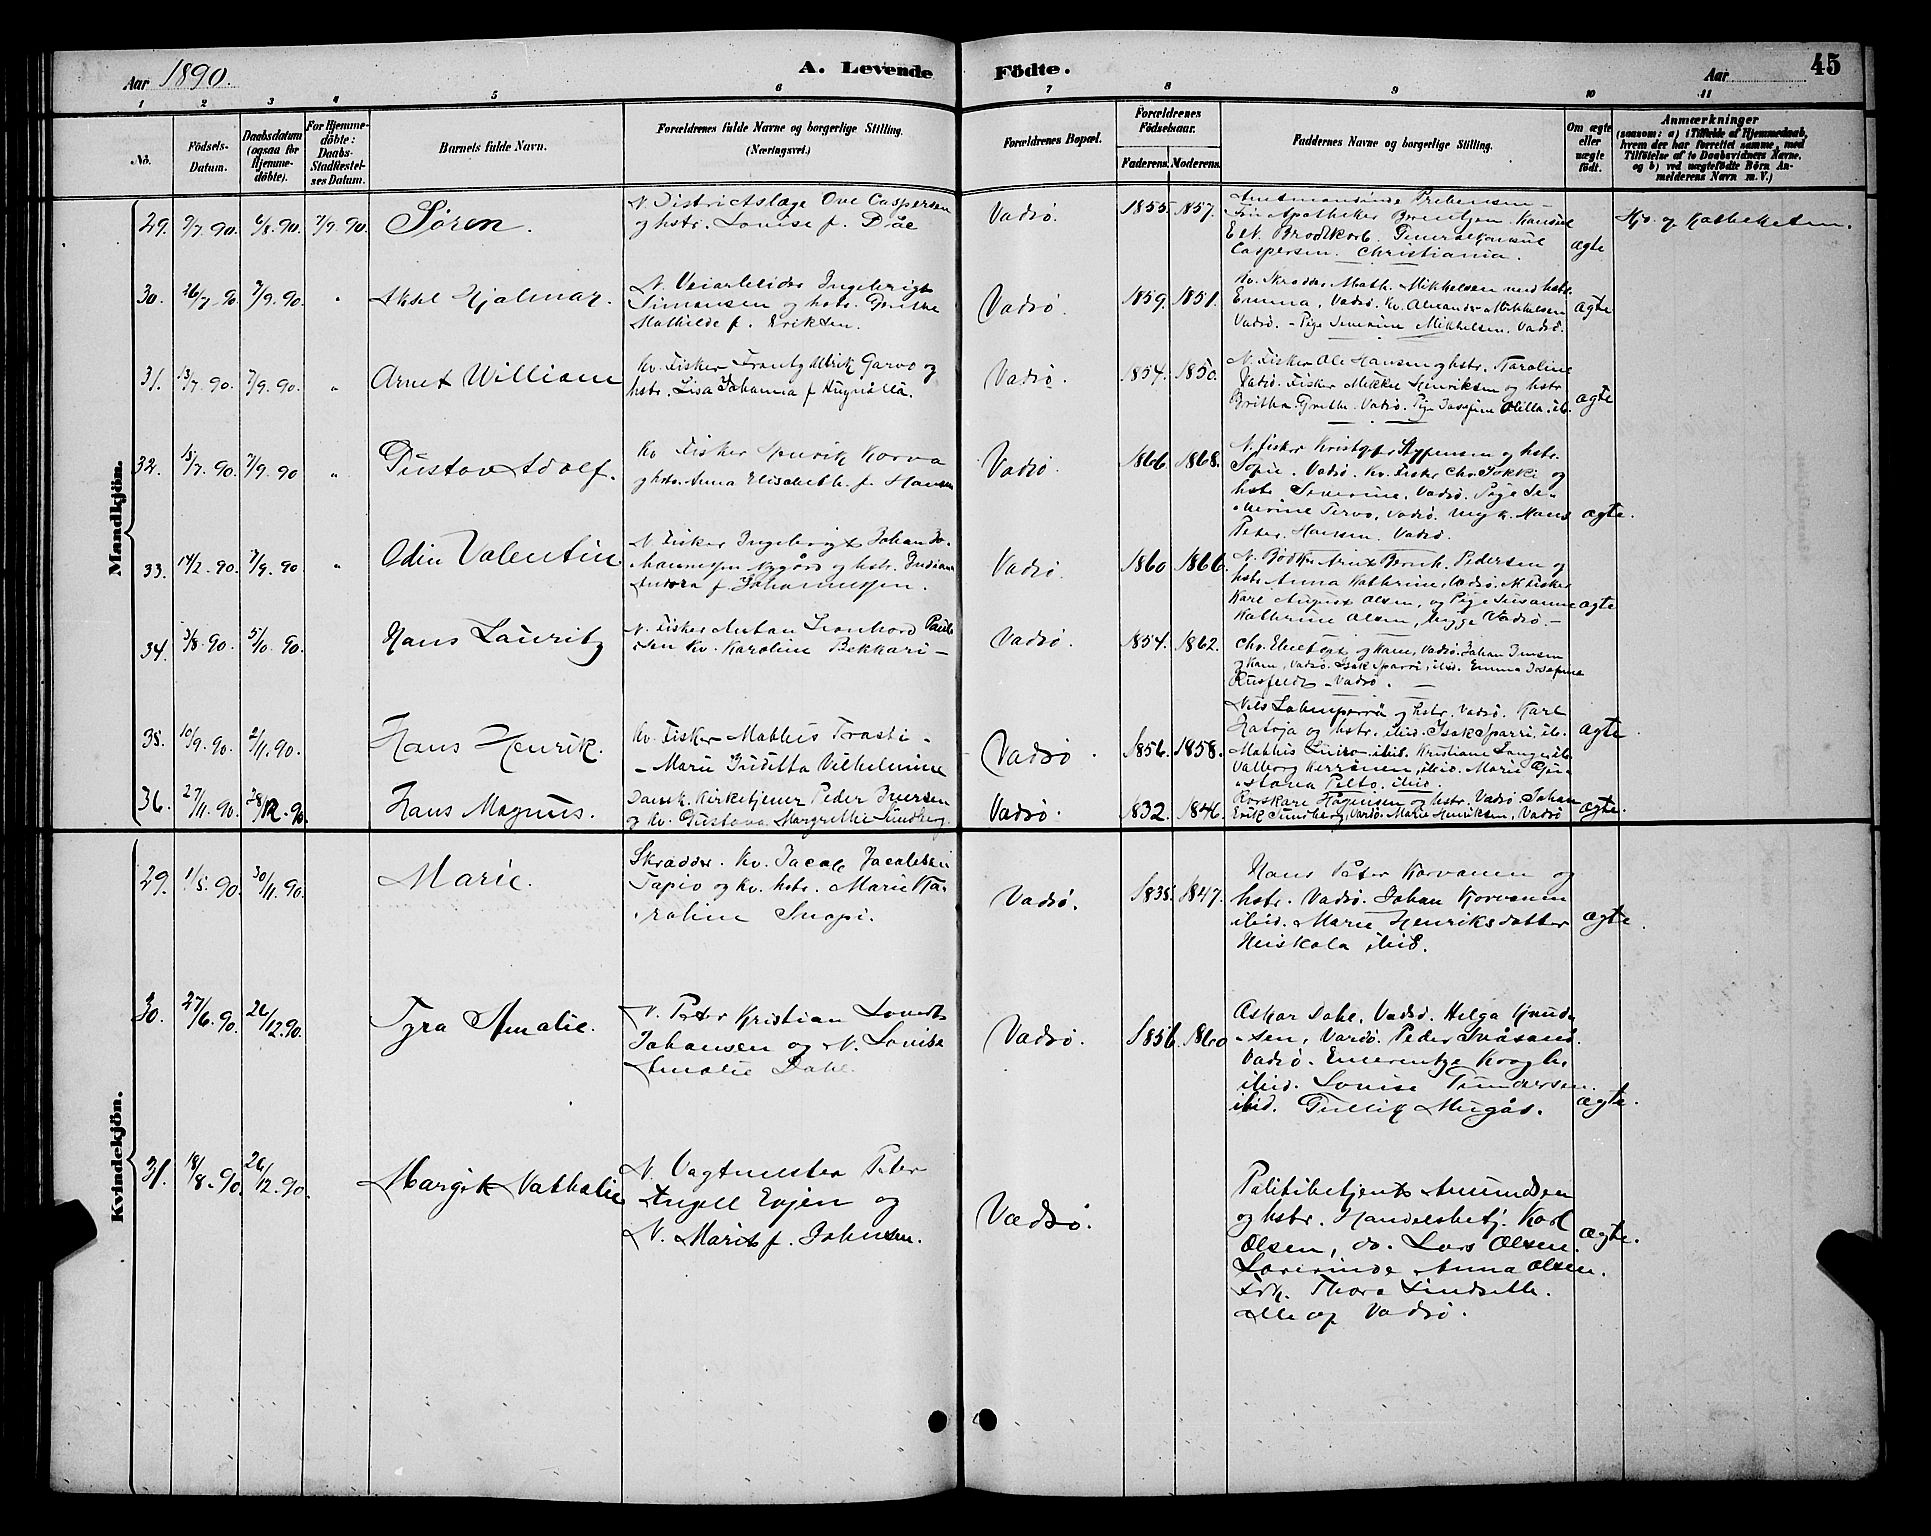 Aar 1890.
A. Levende
Födte.
Aar
45
1 2 3 4 5 6 7 8 9 10 11
No.
Födsels-Datum.
Daabsdatum (ogsaa for Hjemme-döbte).
For Hjemme-döbte: Daabs-Stadfæstel-ses Datum.
Barnets fulde Navn.
Forældrenes fulde Navne og borgerlige Stilling. (Næringsvei.)
Forældrenes Bopæl.
Forældrenes Födselsaar.
Faderens. Moderens.
Faddernes Navne og borgerlige Stilling.
Om ægte eller uægte födt.
Anmærkninger
(saasom: a) i Tilfælde af Hjemmedaab, hvem der har forrettet samme, med Tilföielse af to Daabsvidners Navne, og b) ved uægtefödte Börn An-melderens Navn m. V.)
Mandkjön.
29. 9/7 90. 6/8 90. 7/9. 90. Søren.
N. Districtslæge Ove Caspersen
og hstr. Louise f. Däe
Vadsø. 1855. 1857.
Amtmandinde Prebensen –
Fru Apotheker Konsul
E. N. Brodtkorb. Generalkonsul
Caspersen. Christiania.
ægte
30. 26/7 90 7/9. 90. " Aksel Hjalmar.
N. Veiarbeider Ingebrigt
Simonsen og hstr.
Mathilde f. Eriksen.
Vadsø. 1859. 1851.
Kv. Skrædder Math. Mikkelsen med hstr.
Emma, Vadsø. Kv. Alexander Mikkelsen
Vadsø. – Pige Severine Mikkelsen. Vadsø.
ægte
31. 13/7 90. 7/9. 90. " Arnt William
Kv. Fisker Frantz Ulrik Garvo og
hstr. Lisa Johanna f.
Vadsø. 1854. 1850.
N. Fisker Ole Hansen og hstr. Karoline
Vadsø. Fisker Mikkel Henriksen og hstr
Britha Grethe. Vadsø. Pige Josefine ib.
ægte
32. 13/7. 90. 7/9. 90 " Gustav Adolf.
Kv Fisker Henrik Korva
og hstr. Anna Elisabeth f. Hansen
Vadsø. 1866 1868.
N. Fisker og hstr.
Sofie. Vadsø. Kv. Fisker Chr. Jokki og
hstr Severine. Vadsø. Pige Se-
verine Servo, Vadsø. Ungk. Hans
Peter Hansen. Vadsø.
ægte.
33. 14/2. 90. 7/9. 90 " Odin Valentin
N. Fisker Ingebrigt Johan Jo-
hannesen Nygård og hstr. Indiana
Aurora f. Johannesen.
Vadsø. 1860 1866.
N. Bødker Arnt Bernh. Pedersen og
hstr Anna Kathrine, Vadsø. N. Fisker
Karl August Olsen, og Pige Susanne
Kathrine Olsen, begge Vadsø. –
ægte
34. 3/8. 90. 5/10. 90. Hans Lauritz
N. Fisker Anton Leonhard Paul-
sen Kv. Karoline Bekkari –
Vadsø. 1854. 1862.
og kone, Vadsø. Johan Jensen
og kone, Vadsø. Isak Sparri, ibid. Emma Josefine
– Vadsø. –
35. 10/9. 90. 2/11. 90. Hans Henrik.
Kv. Fisker Mathis Trasti –
– Marie Juditta Vilhelmine
Vadsø. 1856. 1858.
Nils og hstr. Vadsø. Karl
og hstr. ibid. Isak Sparri, ib.
Mathis ibid. Kristiane Lang ib
Valborg Kerränen, ibid. Marie
Maria Pelto, ibid.
ægte.
36. 27/11. 90. 28/12. 90 Hans Magnus.
Dansk. Kirketjener Peder Iversen
og Kv. Gustava Margrethe Sundberg.
Vadsø. 1832. 1846.
Roerskarl Hågensen og hstr. Vadsø Johan
Erik Sundberg, Vardø. Marie Henriksen, Vadsø
ægte.
Kvindekjön.
29. 1/5. 90. 30/11. 90. Marie.
Skrædder. Kv. Jacob Jacobsen
Tapio og Kv. hstr. Marie Ka-
roline Snapi.
Vadsø. 1838. 1847.
Hans Peter Korvanen og
hstr. Vadsø. Johan Korvanen
ibid. Marie Henriksdatter
Heiskala ibid.
ægte.
30. 27/6. 90. 26/12. 90. Tyra Amalie.
N. Peter Kristian Lorents
Johansen og N. Lovise
Amalie Dahl.
Vadsø. 1856. 1860
Oskar Dahl, Vadsø. Helga Knud-
sen, Vardø. Peder Svåsand.
Vadsø. Emerentze Krogh.
ibid. Lovise Gundersen.
ibid. Gullik Mugås.
ægte.
31. 18/8. 90. 26/12. 90. Margit Nathalie
N. Vagtmester Peter
Angell Evjen og
N. Marit f. Johnsen.
Vadsø.
Politibetjent Amundsen
og hstr. Handelsbetj. Karl
Olsen, do. Lars Olsen.
Lærerinde Anna Olsen.
Frk. Thora Lindseth.
alle af Vadsø.
ægte.